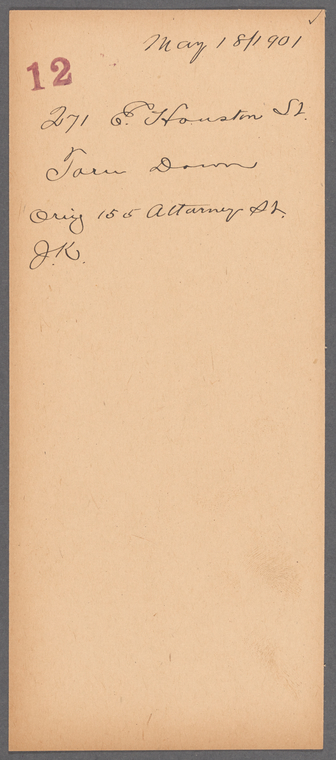 May 18/1901
12
271 E. Houston St.
Torn Down
Orig 155 Attorney St.
J.K.